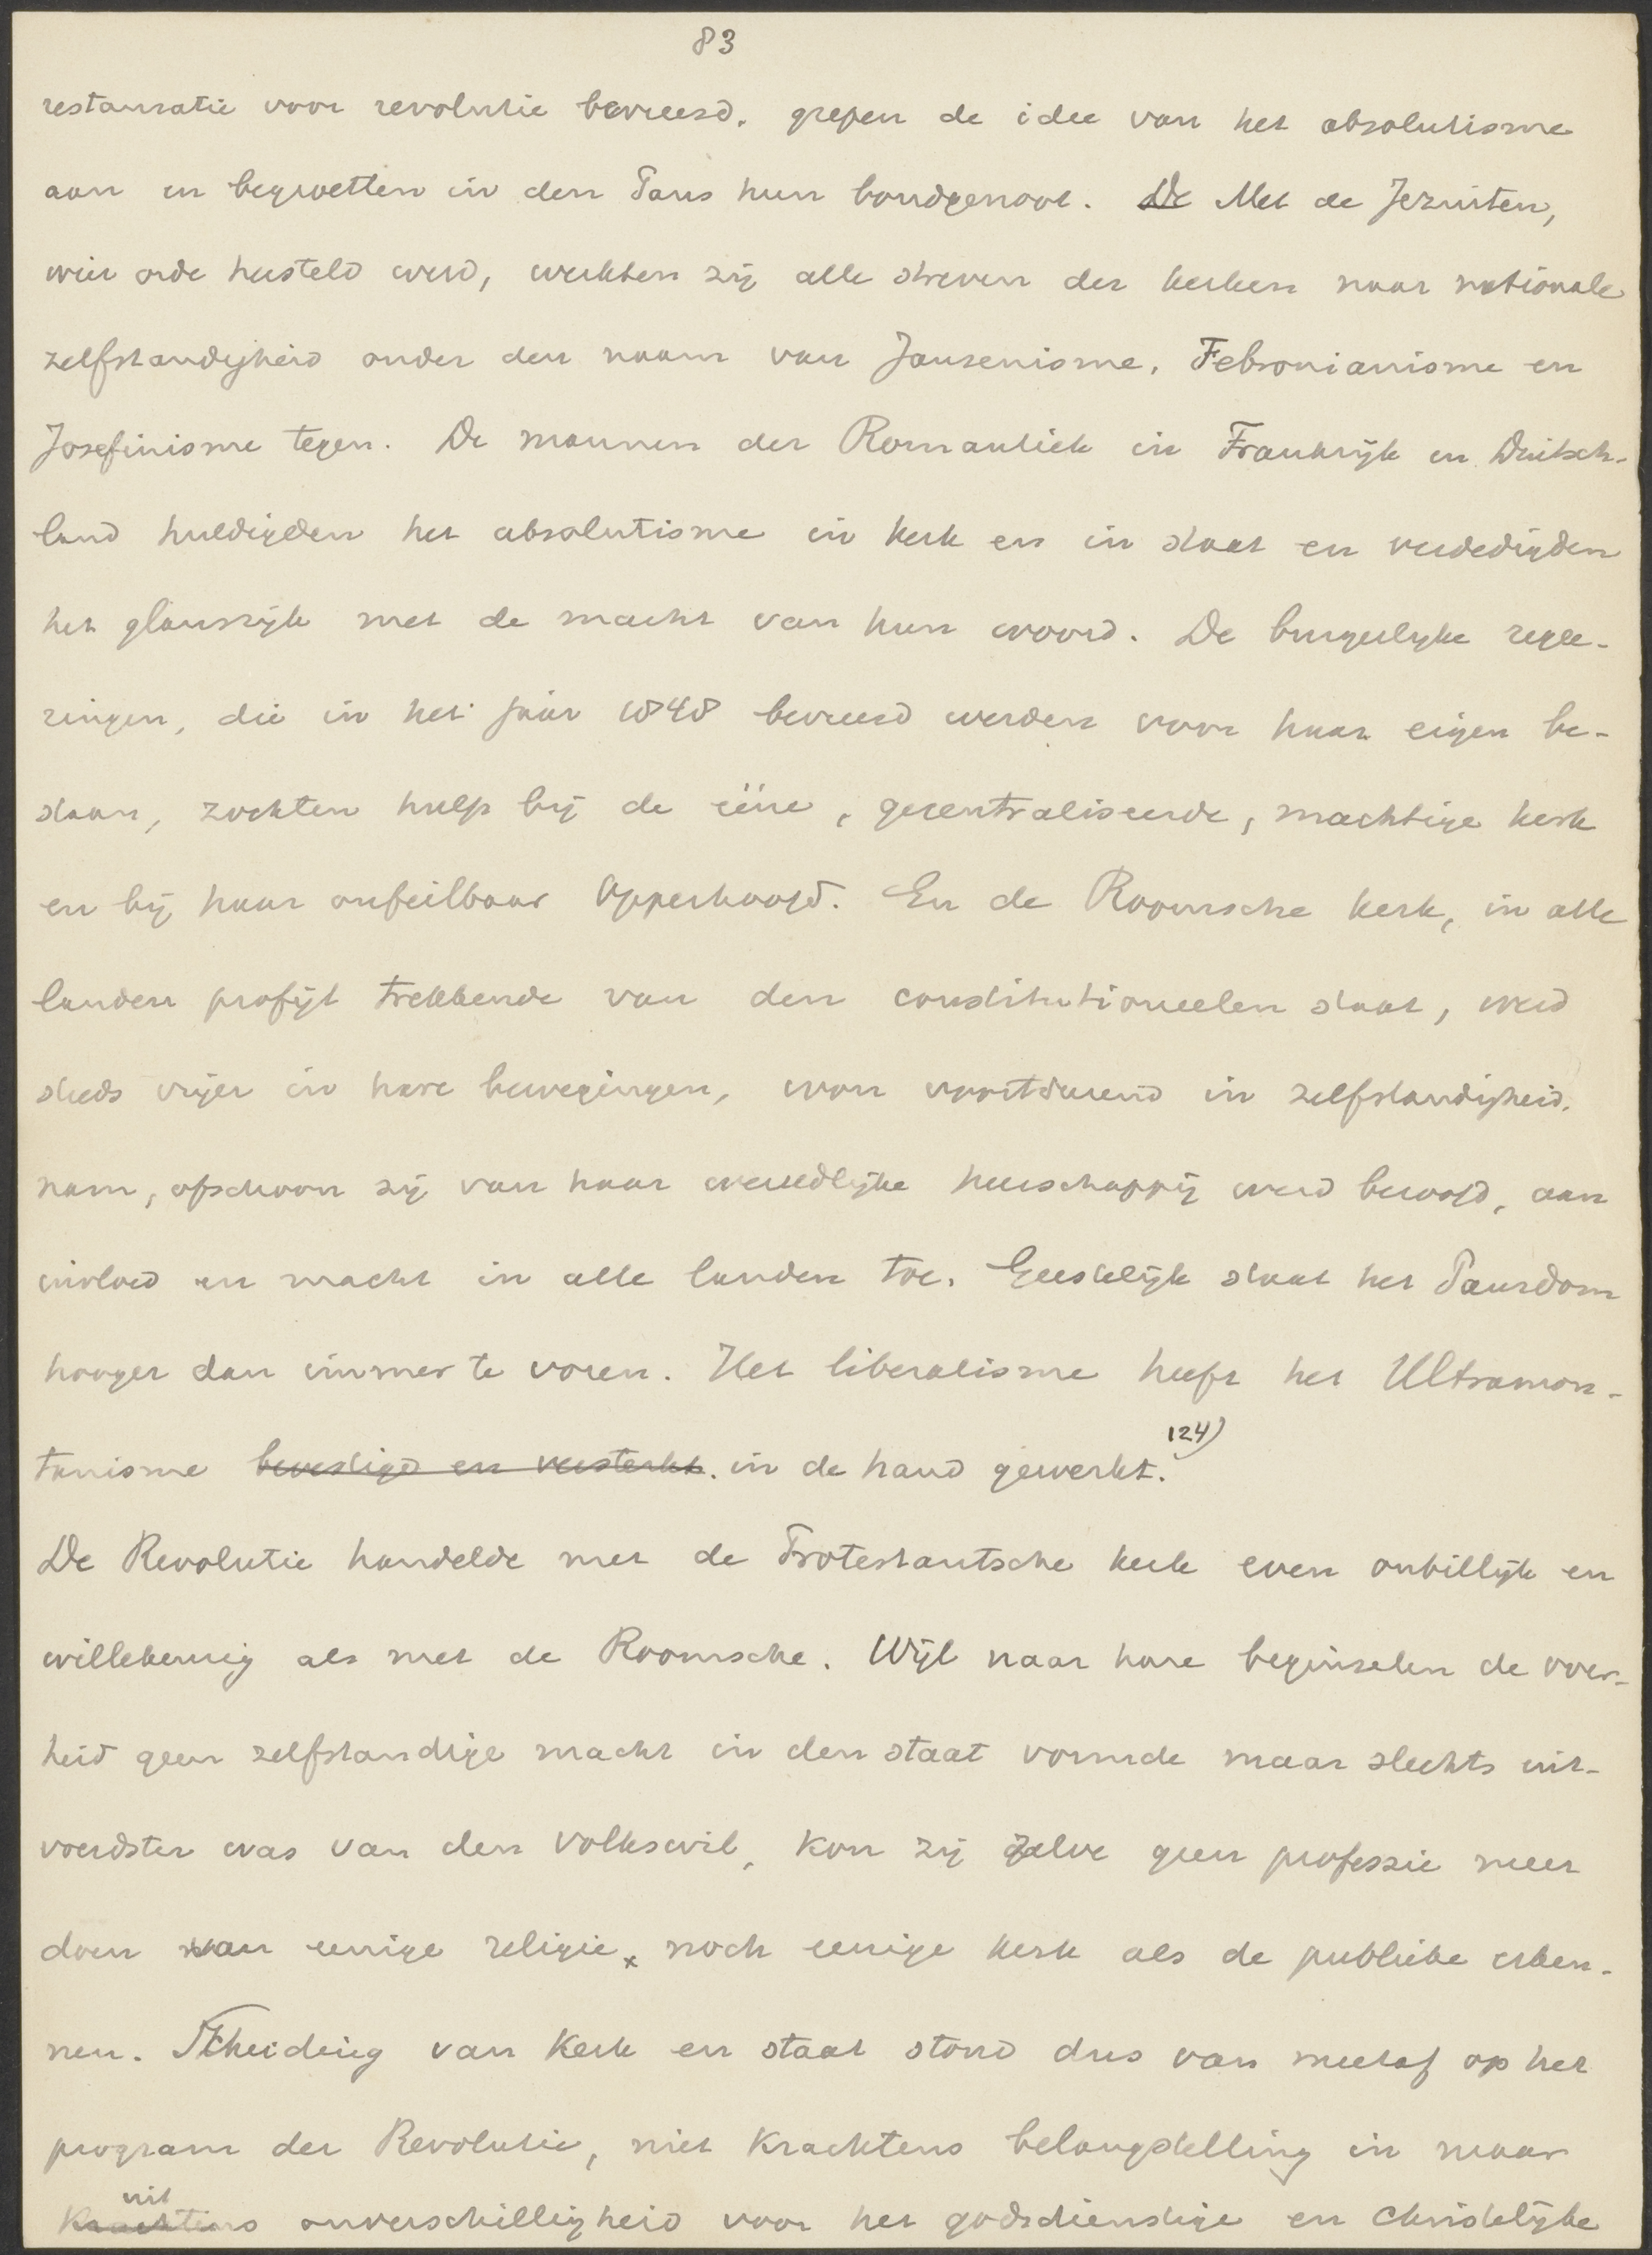 83
restauratie voor revolutie bevreesd, grepen de idee van het absolutisme
aan en begroetten in den Paus hun bondgenoot. De Met de Jezuiten,
wier orde hersteld werd, werkten zij alle streven der kerken naar nationale
zelfstandigheid onder den naam van Jansenisme, Febronianisme en
Josefinisme tegen. De mannen der Romantiek in Frankrijk en Duitsch-
land huldigden het absolutisme in kerk en in staat en verdedigden
het glansrijk met de macht van hun woord. De burgerlijke regee-
ringen, die in het jaar 1848 bevreesd werden voor haar eigen be-
staan, zochten hulp bij de ééne, gecentraliseerde, machtige kerk
en bij haar onfeilbaar Opperhoofd. En de Roomsche kerk, in alle
landen profijt trekkende van den constitutioneelen staat, werd
steeds vrijer in hare bewegingen, won voortdurend in zelfstandigheid,
nam, ofschoon zij van haar wereldlijke heerschappij werd beroofd, aan
invloed en macht in alle landen toe. Geestelijk staat het Pausdom
hooger dan immer te voren. Het liberalisme heeft het Ultramon-
tanisme bevestigd en versterkt. in de hand gewerkt. 124)
De Revolutie handelde met de Protestantsche kerk even onbillijk en
willekeurig als met de Roomsche. Wijl naar hare beginselen de over-
heid geen zelfstandige macht in den staat vormde maar slechts uit-
voerdster was van den volkswil, kon zij zelve geen professie meer
doen van eenige religie, noch eenige kerk als de publieke erken-
nen. Scheiding van Kerk en staat stond dus van meetaf op het
program der Revolutie, niet krachtens belangstelling in maar
uit
Krachtens onverschilligheid voor het godsdienstige en Christelijke